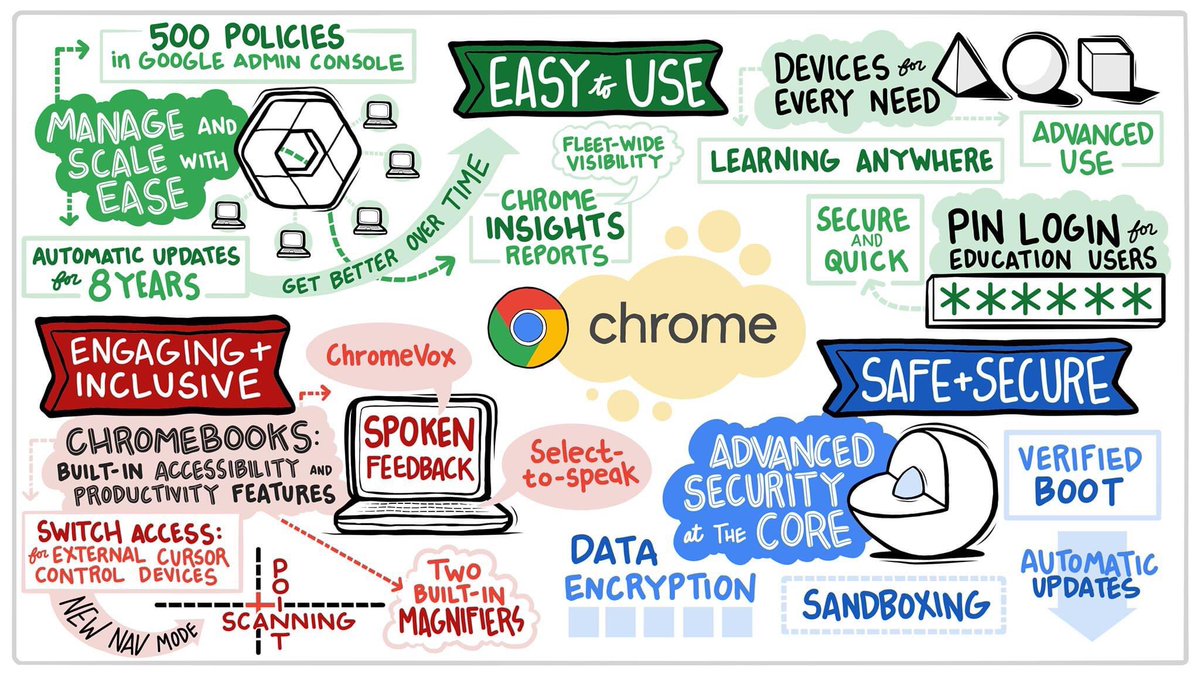 500 POLICIES
in GOOGLE ADMIN CONSOLE
MANAGE AND
SCALE WITH
EASE
AUTOMATIC UPDATES
for 8 YEARS
GET BETTER OVER TIME
EASY to USE
FLEET-WIDE
VISIBILITY
CHROME
INSIGHTS
REPORTS
DEVICES for
EVERY NEED
LEARNING ANYWHERE
ADVANCED
USE
SECURE
AND
QUICK
PIN LOGIN for
EDUCATION USERS
******
chrome
ENGAGING +
INCLUSIVE
CHROMEBOOKS:
BUILT-IN ACCESSIBILITY AND
PRODUCTIVITY FEATURES
ChromeVox
SPOKEN
FEEDBACK
Select-
to-speak
SWITCH ACCESS:
for EXTERNAL CURSOR
CONTROL DEVICES
NEW NAV MODE
POINT
SCANNING
TWO
BUILT-IN
MAGNIFIERS
SAFE + SECURE
ADVANCED
SECURITY
at THE CORE
VERIFIED
BOOT
DATA
ENCRYPTION
SANDBOXING
AUTOMATIC
UPDATES